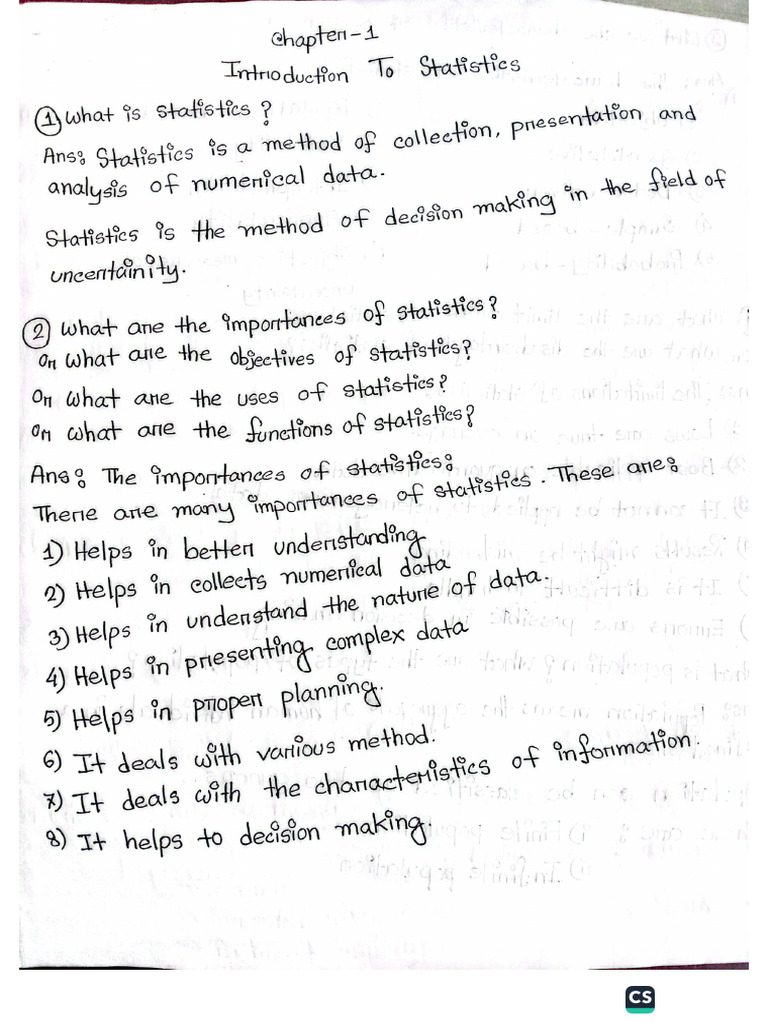 Chapter-1
Introduction To Statistics
① What is statistics?
Ans: Statistics is a method of collection, presentation and
analysis of numerical data.
Statistics is the method of decision making in the field of
uncertainity.
② What are the importances of statistics?
Or What are the objectives of statistics?
Or What are the uses of statistics?
Or What are the functions of statistics?
Ans: The importances of statistics:
There are many importances of statistics. These are:
1) Helps in better understanding
2) Helps in collects numerical data
3) Helps in understand the nature of data.
4) Helps in presenting complex data
5) Helps in proper planning.
6) It deals with various method.
7) It deals with the characteristics of information.
8) It helps to decision making.
CS